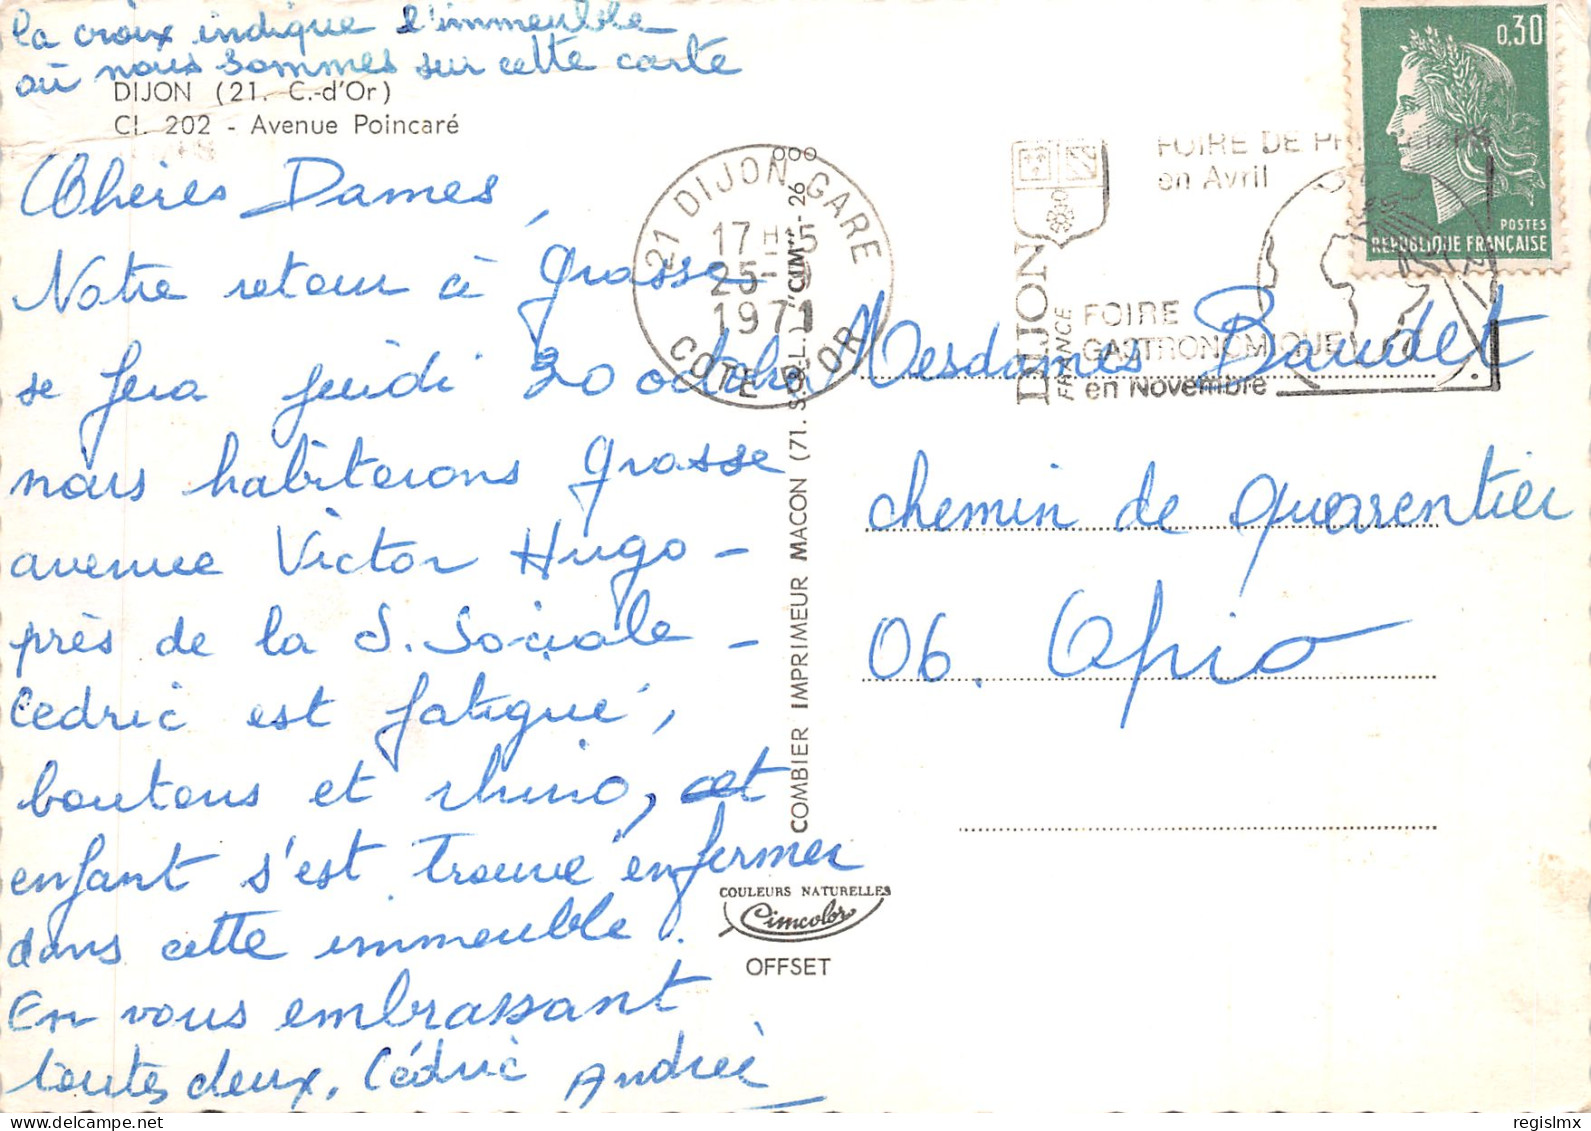 la croix indique l'immeuble
où nous sommes sur cette carte
DIJON (21. C.-d'Or)
CI. 202 - Avenue Poincaré
Chères Dames,
Notre retour à Grasse
se fera jeudi 30 octobre
nous habiterons Grasse
avenue Victor Hugo -
près de la S. Sociale -
Cédric est fatigué,
boutons et rhino, cet
enfant s'est trouvé enfermer
dans cette immeuble.
En vous embrassant
toutes deux, Cédric Andreé
COMBIER IMPRIMEUR MACON (71. S.-&-L.) "CIM" - 26
COULEURS NATURELLES
Cimcolor
OFFSET
21 DIJON GARE
17 H 15
25 - 9
1971
COTE D'OR
DIJON
FRANCE
FOIRE DE
en Avril
FOIRE
GASTRONOMIQUE
en Novembre
0,30
POSTES
REPUBLIQUE FRANÇAISE
Mesdames Baudet
chemin de Quarentier
06. Opio
regislmx